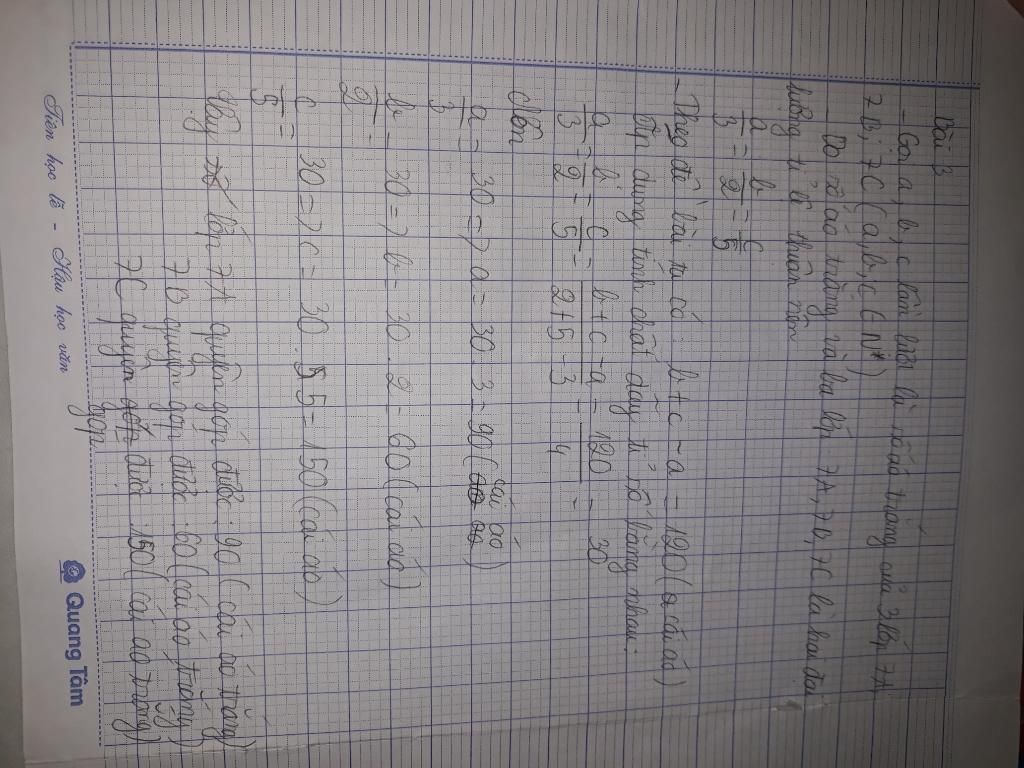 Bài 3
- Gọi a, b, c lần lượt là số áo trắng của 3 lớp 7A
7B, 7C (a, b, c ∈ N*)
- Do số áo trắng và ba lớp 7A, 7B, 7C là hai đại
lượng tỉ lệ thuận nên
a/3 = b/2 = c/5
- Theo đề bài ta có: b + c - a = 120 (cái áo)
Áp dụng tính chất dãy tỉ số bằng nhau:
a/3 = b/2 = c/5 = b+c-a/2+5-3 = 120/4 = 30
Nên
a/3 = 30 => a = 30.3 = 90 (cái áo)
b/2 = 30 => b = 30.2 = 60 (cái áo)
c/5 = 30 => c = 30.5 = 150 (cái áo)
Vậy lớp 7A quyên góp được: 90 (cái áo trắng)
7B quyên góp được: 60 (cái áo trắng)
7C quyên góp được: 150 (cái áo trắng)
Tiên học lễ - Hậu học văn
Quang Tâm